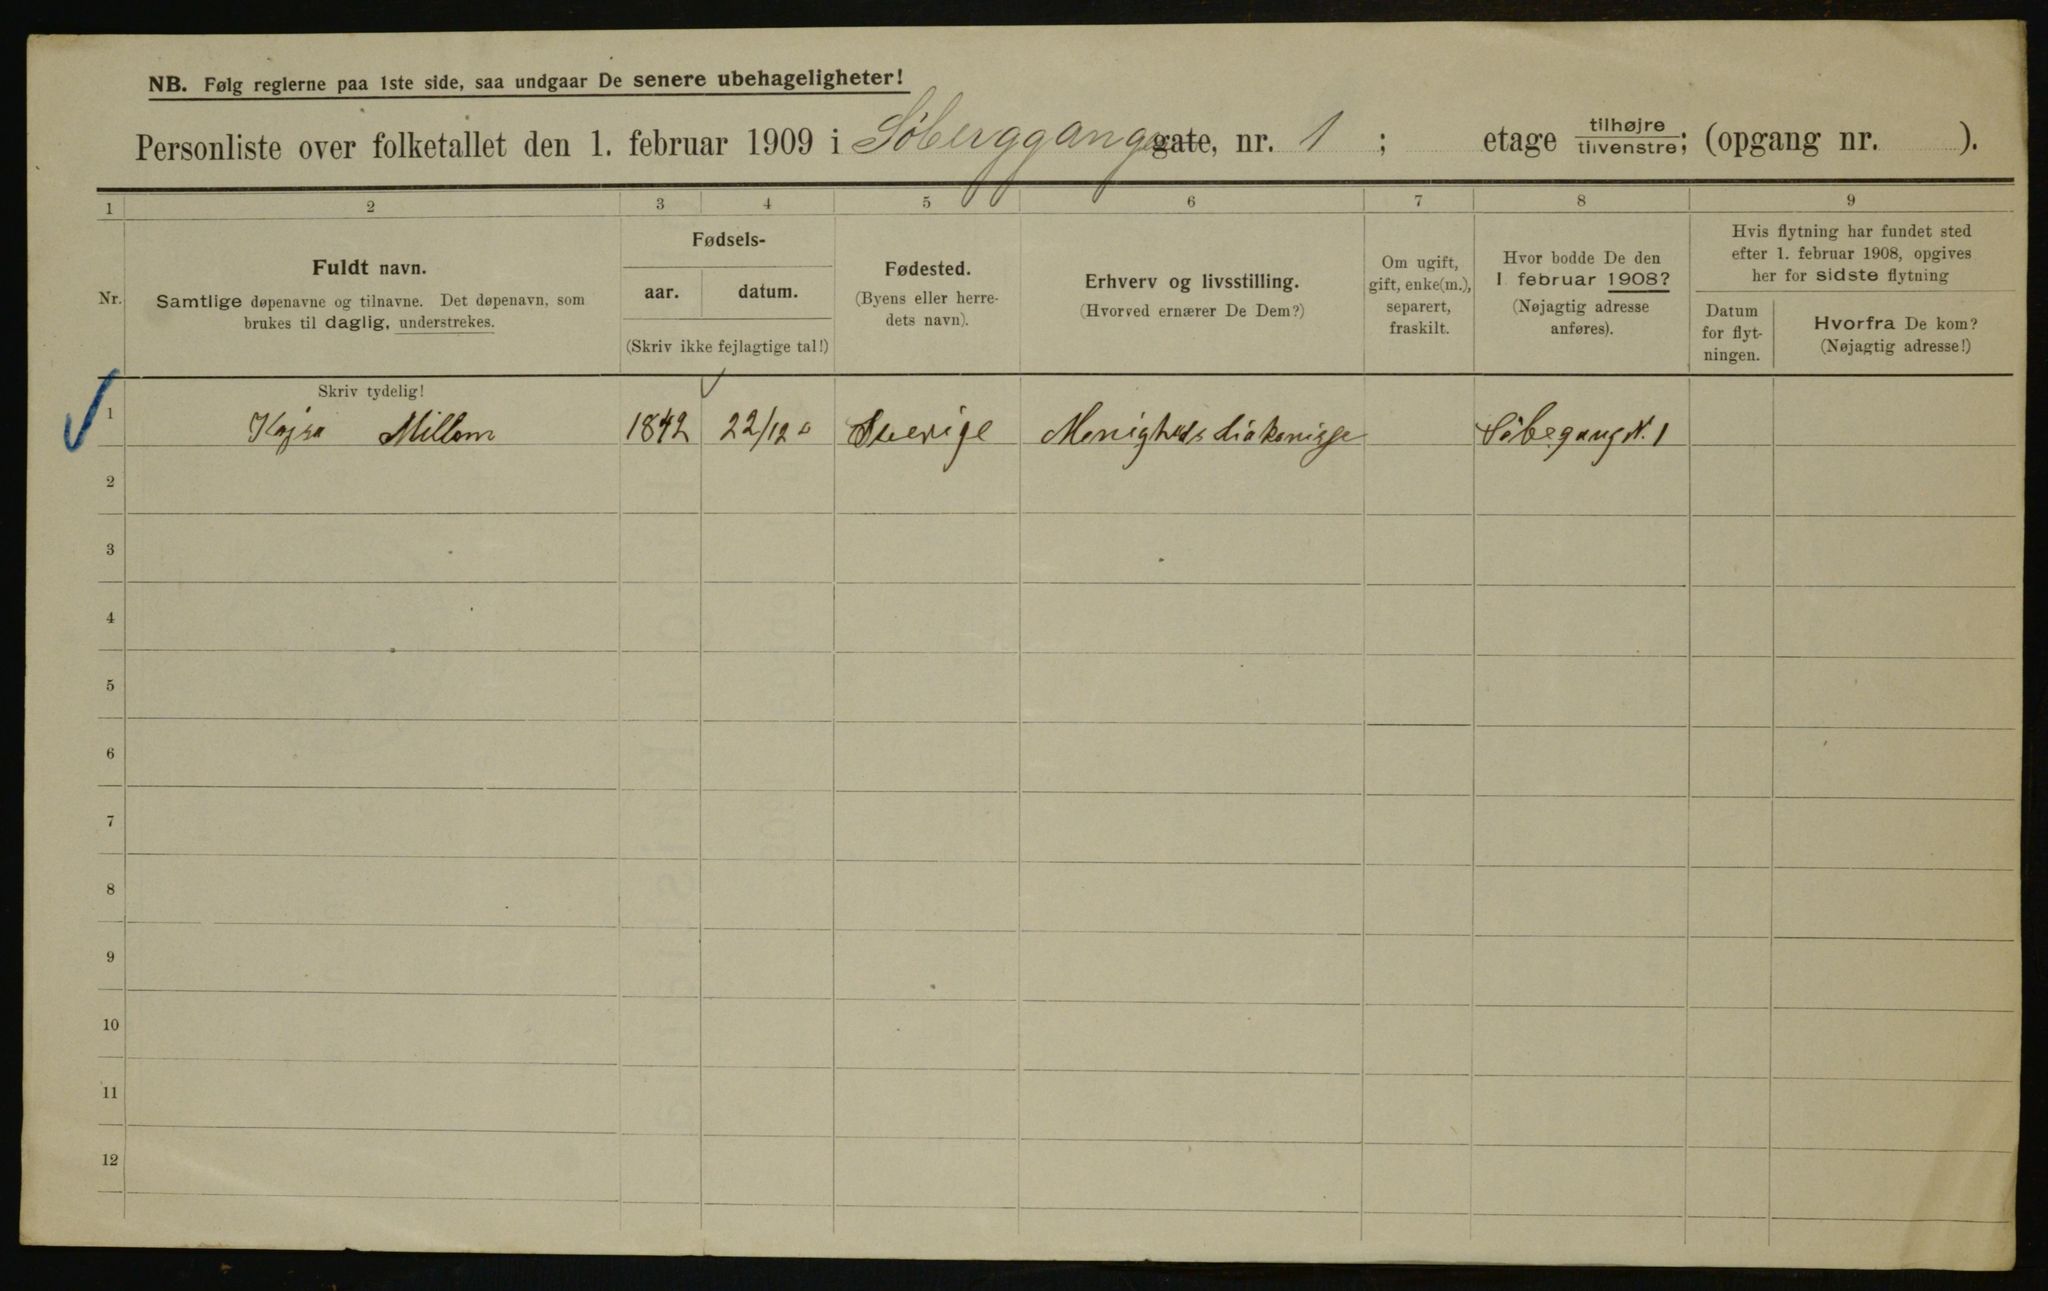 NB. Følg reglerne paa 1ste side, saa undgaar De senere ubehageligheter!
Personliste over folketallet den 1. februar 1909 i Søberggangen gate, nr. 1 ; etage tilhøjre tilvenstre; (opgang nr. ).
1 2 3 4 5 6 7 8 9
Nr.
Fuldt navn.
Samtlige døpenavne og tilnavne. Det døpenavn, som
brukes til daglig, understrekes.
Fødsels-
aar. datum.
(Skriv ikke fejlagtige tal!)
Fødested.
(Byens eller herre-
dets navn).
Erhverv og livsstilling.
(Hvorved ernærer De Dem?)
Om ugift,
gift, enke(m.),
separert,
fraskilt.
Hvor bodde De den
1 februar 1908?
(Nøjagtig adresse
anføres).
Hvis flytning har fundet sted
efter 1. februar 1908, opgives
her for sidste flytning
Datum
for flyt-
ningen.
Hvorfra De kom?
(Nøjagtig adresse!)
Skriv tydelig!
1 Kajsa 1842 22/12 Sverige Menigheds diakonisse Søbegang N. 1
2
3
4
5
6
7
8
9
10
11
12